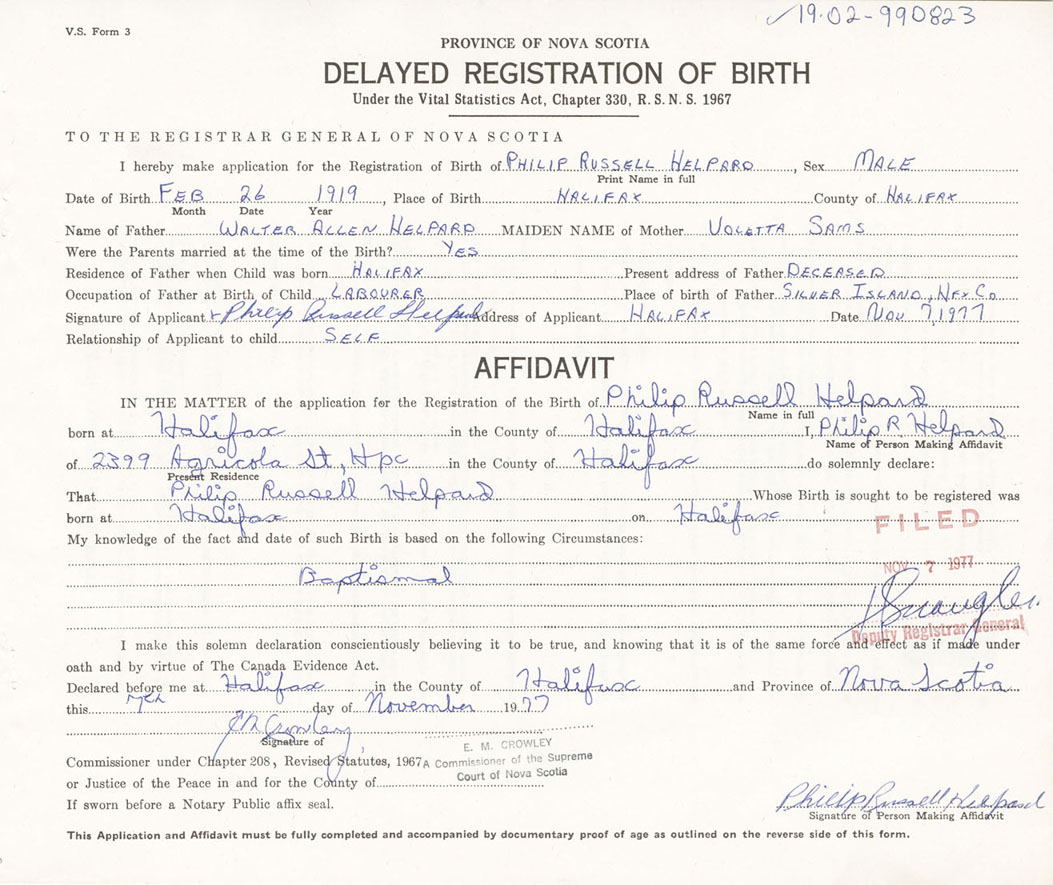 19·02-990823
V.S. Form 3
PROVINCE OF NOVA SCOTIA
DELAYED REGISTRATION OF BIRTH
Under the Vital Statistics Act, Chapter 330, R.S.N.S. 1967
TO THE REGISTRAR GENERAL OF NOVA SCOTIA
I hereby make application for the Registration of Birth of PHILIP RUSSELL HELPARD, Sex MALE
Print Name in full
Date of Birth FEB 26 1919, Place of Birth HALIFAX County of HALIFAX
Month Date Year
Name of Father WALTER ALLEN HELPARD MAIDEN NAME of Mother VOLETTA SAMS
Were the Parents married at the time of the Birth? YES
Residence of Father when Child was born HALIFAX Present address of Father DECEASED
Occupation of Father at Birth of Child LABOURER Place of birth of Father SILVER ISLAND, HFX CO
Signature of Applicant Philip Russell Helpard Address of Applicant HALIFAX Date NOV 7, 1977
Relationship of Applicant to child SELF
AFFIDAVIT
IN THE MATTER of the application for the Registration of the Birth of Philip Russell Helpard
Name in full
born at Halifax in the County of Halifax I, Philip R. Helpard
Name of Person Making Affidavit
of 2399 Agricola St, Hfx in the County of Halifax do solemnly declare:
Present Residence
That Philip Russell Helpard Whose Birth is sought to be registered was
born at Halifax on Halifax
FILED
My knowledge of the fact and date of such Birth is based on the following Circumstances:
NOV 7 1977
Baptismal
Deputy Registrar General
I make this solemn declaration conscientiously believing it to be true, and knowing that it is of the same force and effect as if made under
oath and by virtue of The Canada Evidence Act.
Declared before me at Halifax in the County of Halifax and Province of Nova Scotia
this 7th day of November 1977
EM Crowley
Signature of
E. M. CROWLEY
A Commissioner of the Supreme
Court of Nova Scotia
Commissioner under Chapter 208, Revised Statutes, 1967,
or Justice of the Peace in and for the County of
If sworn before a Notary Public affix seal.
Philip Russell Helpard
Signature of Person Making Affidavit
This Application and Affidavit must be fully completed and accompanied by documentary proof of age as outlined on the reverse side of this form.